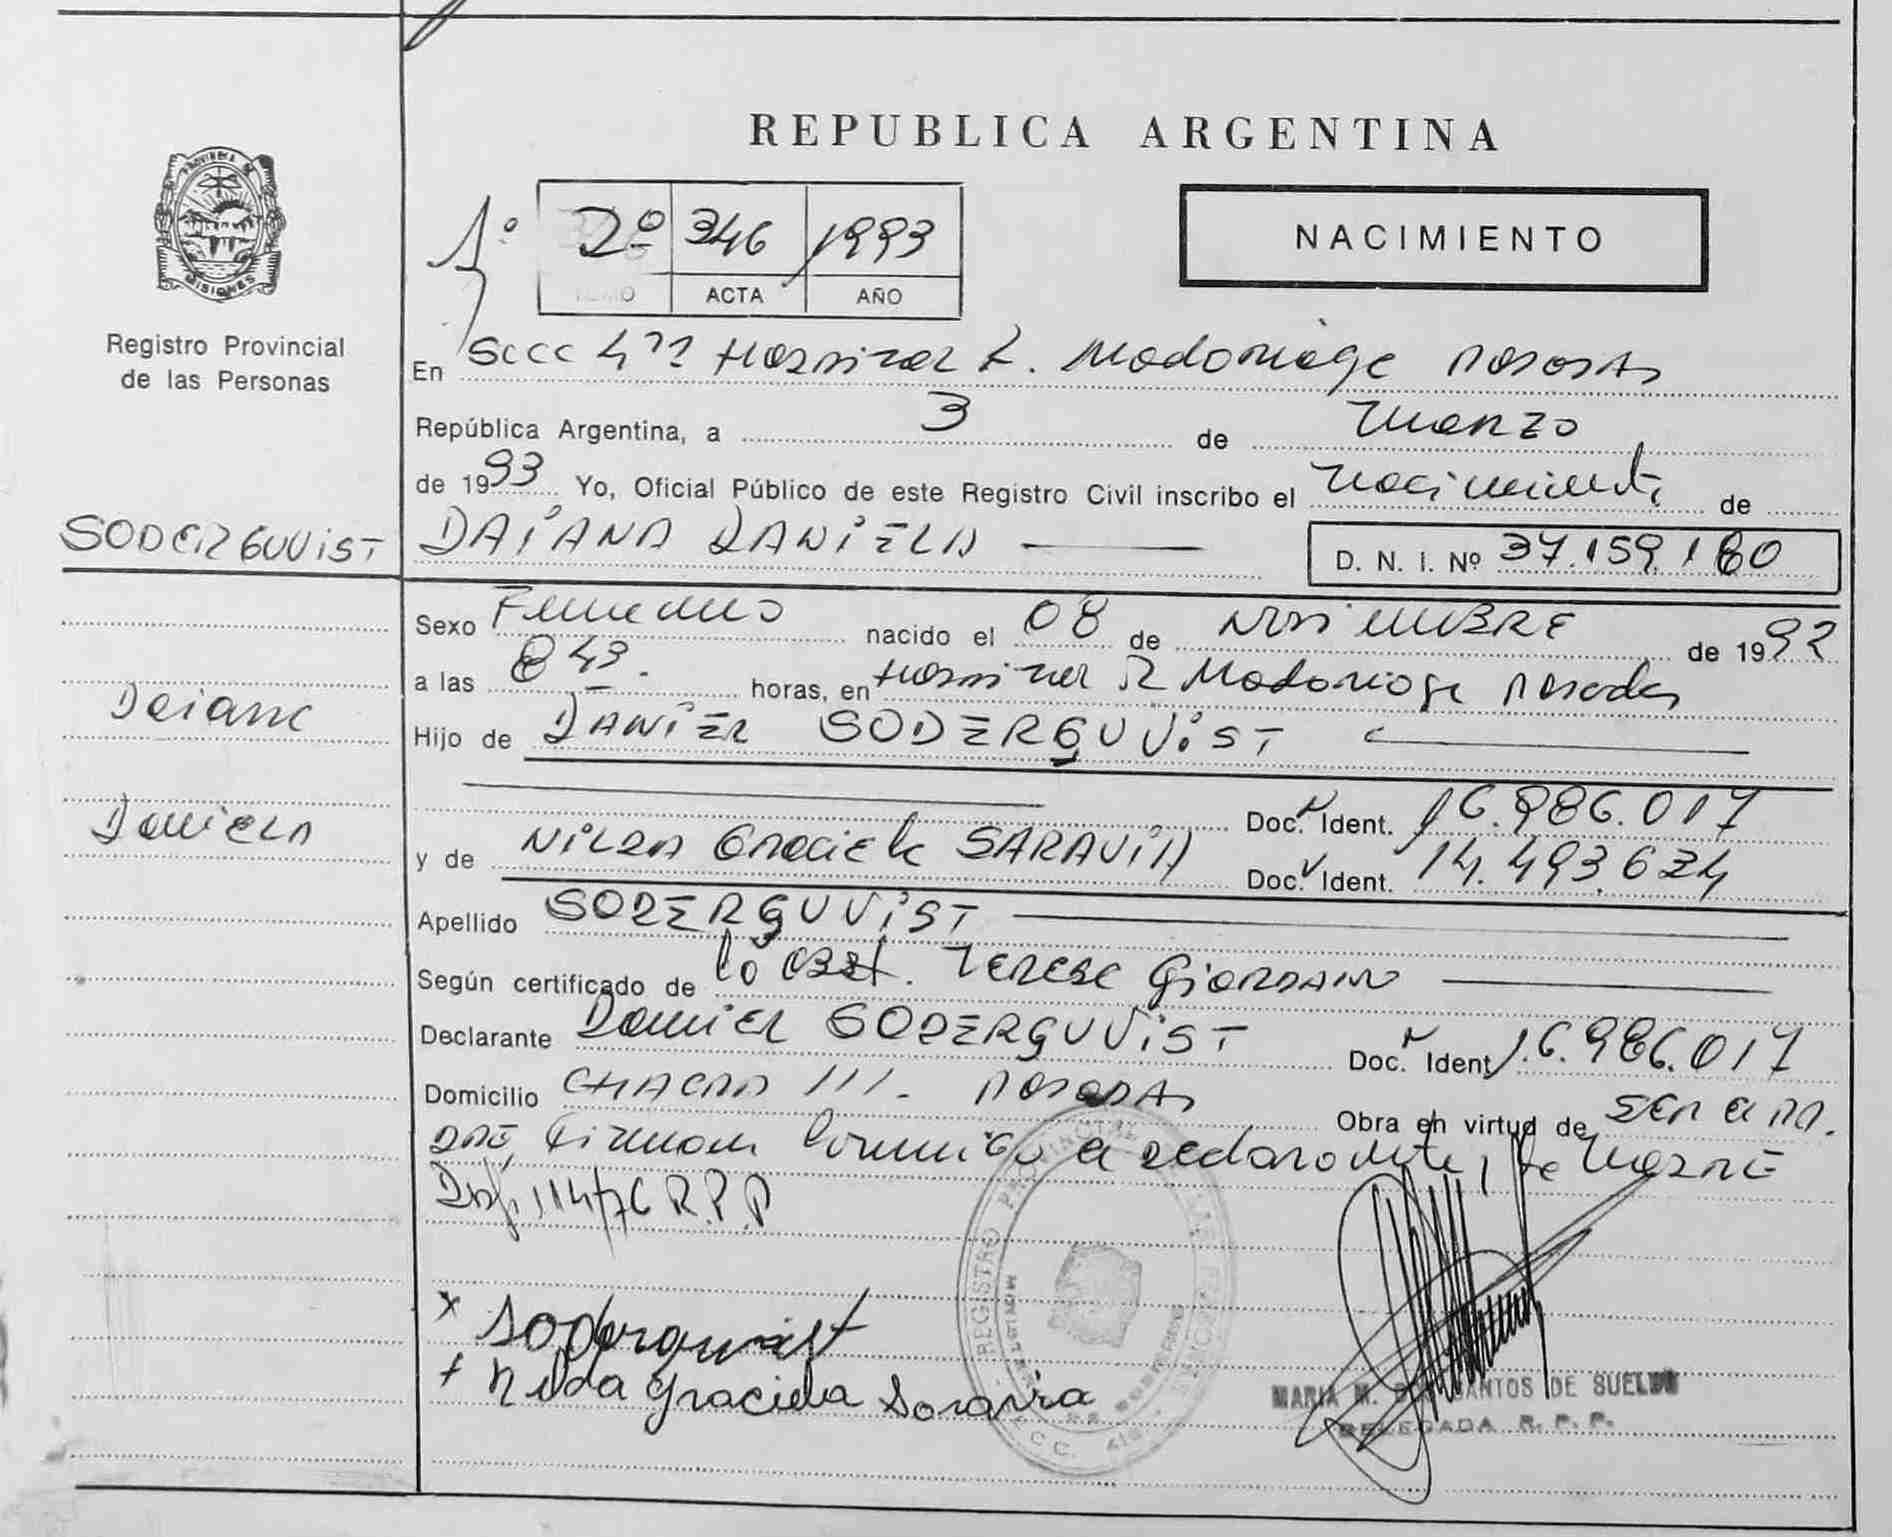 REPUBLICA ARGENTINA
PROVINCIA DE
MISIONES
Registro Provincial
de las Personas
NACIMIENTO
1º 2º 346 1993
TOMO ACTA AÑO
En Secc 4ta Hospital R. Madariaga Posadas
República Argentina, a 3 de Marzo
de 1993 Yo, Oficial Público de este Registro Civil inscribo el Nacimiento de
SODERGUVIST DAIANA DANIELA
D. N. I. Nº 37.159.180
Sexo Femenino nacido el 08 de Noviembre de 1992
a las 8 43. horas, en Hospital R Madariaga Posadas
Daiana
Hijo de DANIEL SODERGUVIST
Doc. Ident. 16.986.017
Daniela
y de Nilda Graciela SARAVIA Doc. Ident. 14.493.624
Apellido SODERGUVIST
Según certificado de la Obst. Teresa Giordano
Declarante Daniel SODERGUVIST Doc. Ident 16.986.017
Domicilio CHACRA 111. POSADAS Obra en virtud de ser el pa.
dre, Firman conmigo el declarante, la Madre
Disp. 114/76 R.P.P
x Soderguvist
+ Nilda Graciela Saravia
REGISTRO PROVINCIAL DE LAS PERSONAS
MARIA M. SANTOS DE SUELDO
DELEGADA R. P. P.